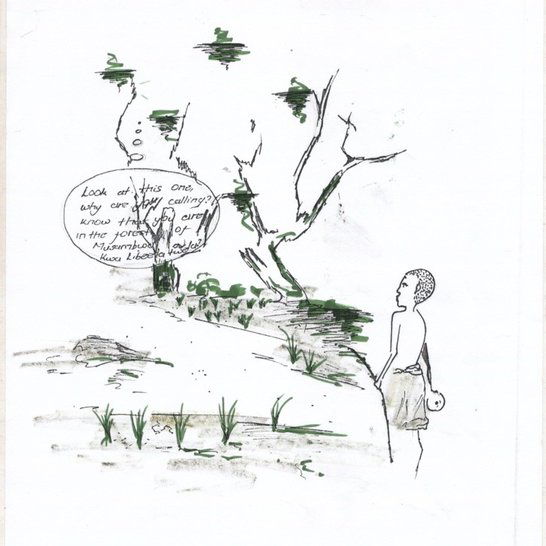 Look at this one,
why are you calling?
know that you are
in the forest of
Musambwa
Kwa Libeela